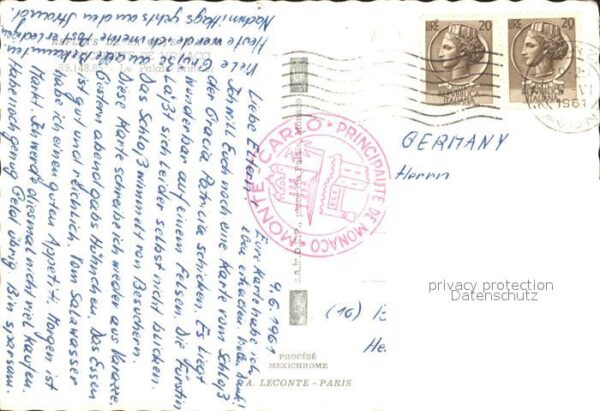 9.6.1961
Liebe Eltern! Eure Karte habe ich
eben erhalten. Vielen Dank!
Ich will Euch noch eine Karte vom Schloß
der Gracia Patricia schicken. Es liegt
wunderbar auf einem Felsen. Die Fürstin
läßt sich leider selbst nicht blicken.
Das Schloß wimmelt von Besuchern.
Diese Karte schreibe ich wieder aus Varazze.
Gestern abend gabs Hühnchen. Das Essen
ist gut und reichlich. Vom Salzwasser
habe ich einen guten Appetit. Morgen ist
Markt. Ich werde diesmal nicht viel kaufen.
Geld übrig. Bin sparsam.
Viele Grüße an alle Bekannten
Heute werde ich meine Post erledigen
Nachmittags gehts an den Strand.
REFLETS DE LA
Le Palais Princier
LIRE 20
ITALIANA
LIRE 20
ITALIANA
1961
MONTE-CARLO • PRINCIPAUTÉ DE MONACO
GERMANY
Herrn
(16)
PROCÉDÉ
MEXICHROME
A. LECONTE - PARIS
privacy protection
Datenschutz